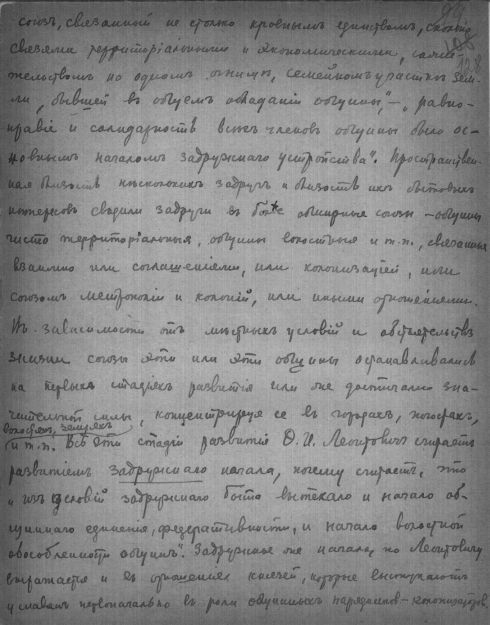 союзъ, связанной не столько кровнымъ единствомъ, сколько
связями территоріальными и экономическими, сожи-
тельствомъ на одномъ общемъ, семейномъ участкѣ зем-
ли, бывшей въ общемъ обладаніи общины," – "равно-
правіе и солидарность всѣхъ членовъ общины было ос-
новнымъ началомъ задружнаго устройства". Пространствен-
ная близость нѣсколькихъ задругъ и близость ихъ бытовыхъ
интересовъ сводили задруги въ болѣе обширные союзы – общины
чисто территоріальныя, общины волостныя и т.п., связанныя
взаимно или соглашеніями, или колонизаціей, или
союзомъ метрополіи и колоній, или иными отношеніями.
Въ зависимости отъ мѣстныхъ условій и обстоятельствъ
жизни союзы эти или эти общины останавливались
на первыхъ стадіяхъ развитія или же достигали зна-
чительной силы, концентрируя ее въ городахъ, погостахъ,
волостяхъ, земляхъ
и т.п. Всѣ эти стадіи развитія Ѳ. И. Леонтовичъ считаетъ
развитіемъ задружнаго начала, почему считаетъ, что
"изъ условій задружнаго быта вытекало и начало об-
щиннаго единенія, федеративности, и начало волостной
обособленности общинъ". Задружное же начало, по Леонтовичу
выражается и въ отношеніяхъ князей, которые выступаютъ
у славянъ первоначально въ роли общинныхъ нарядниковъ – колонизаторовъ,